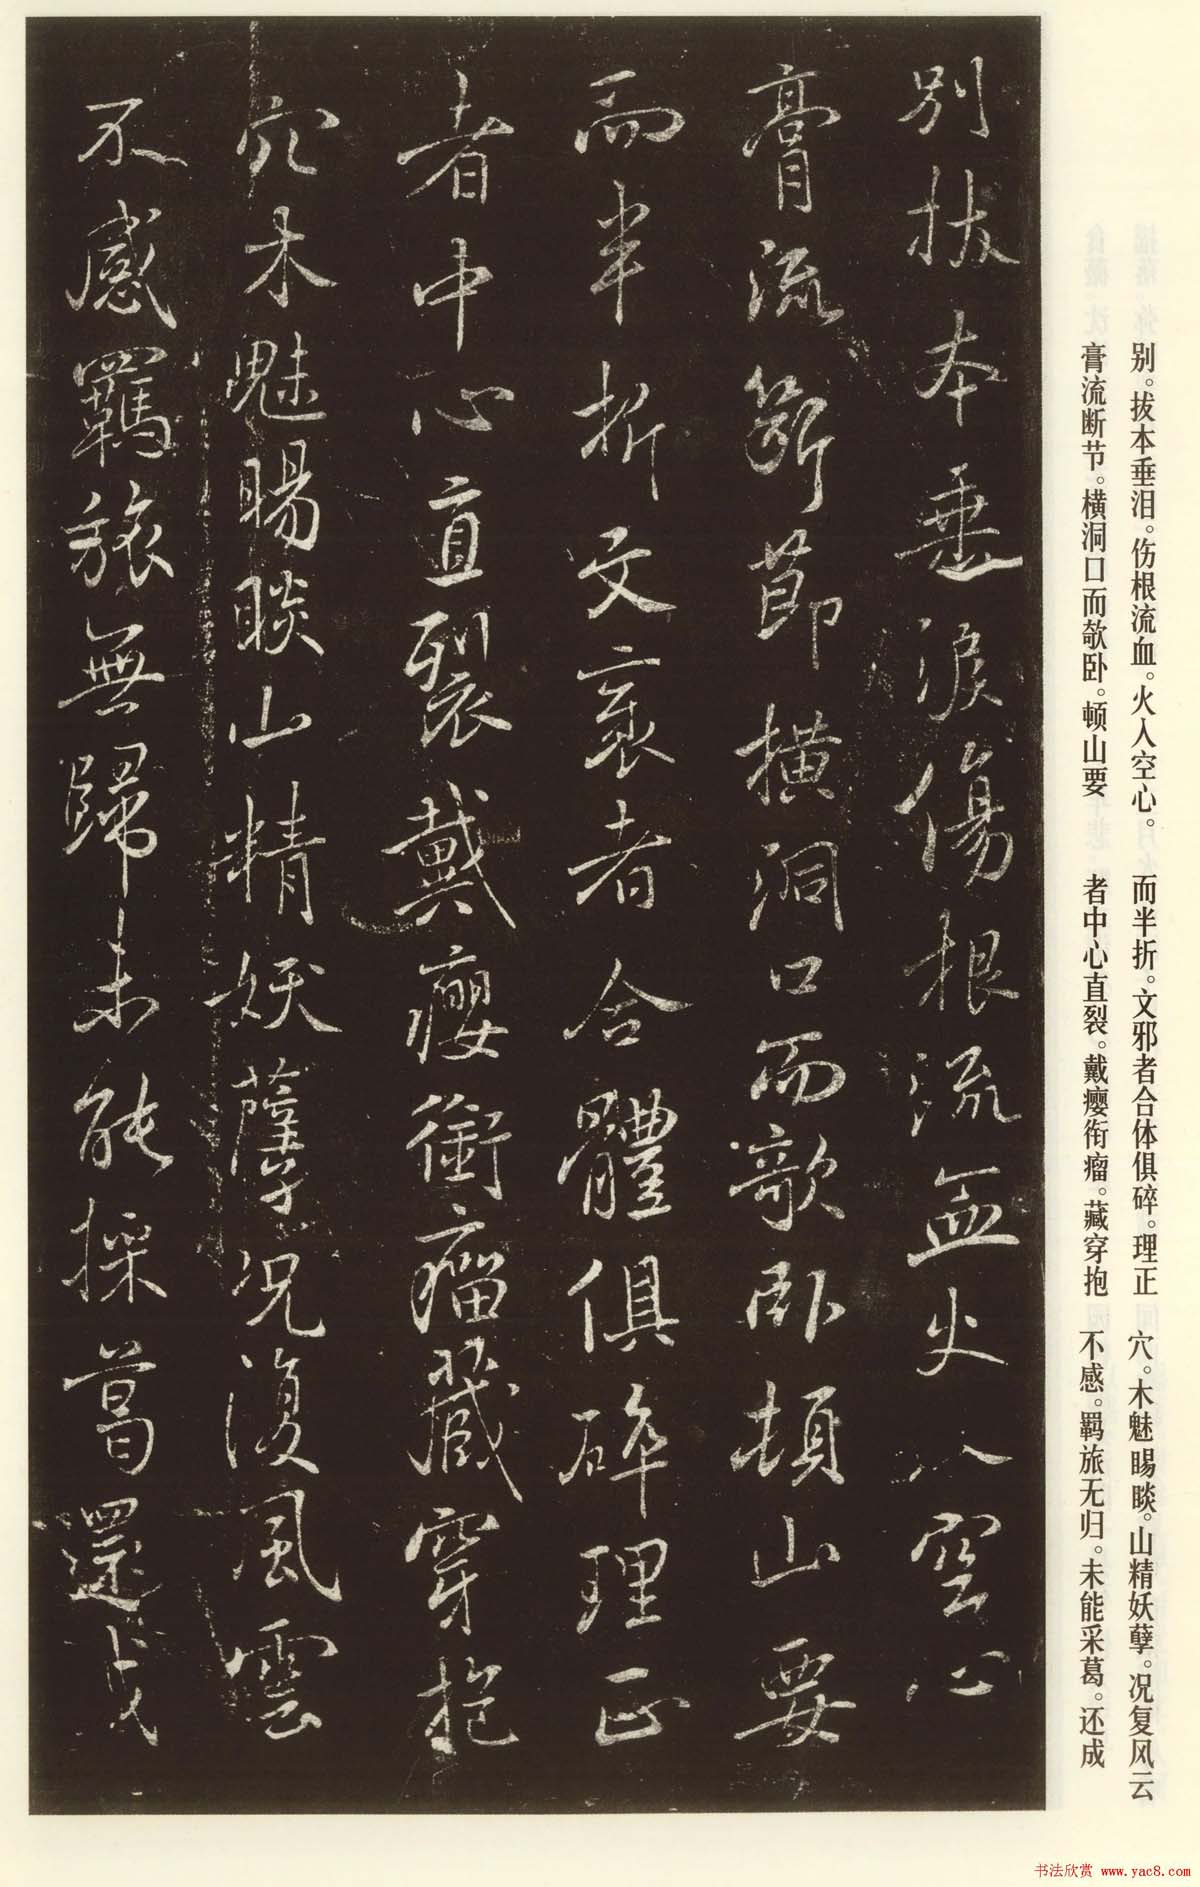 别。拔本垂泪。伤根流血。火入空心。
膏流断节。横洞口而欹卧。顿山要
而半折。文邪者合体俱碎。理正
者中心直裂。戴瘿衔瘤。藏穿抱
穴。木魅睗睒。山精妖孽。况复风云
不感。羁旅无归。未能采葛。还成
別拔本垂淚傷根流血火入空心
膏流斷節橫洞口而欹臥頓山要
而半折文衺者合體俱碎理正
者中心直裂戴癭銜瘤藏穿抱
穴木魅睗睒山精妖孽況復風雲
不感羈旅無歸未能採葛還成
书法欣赏 www.yac8.com